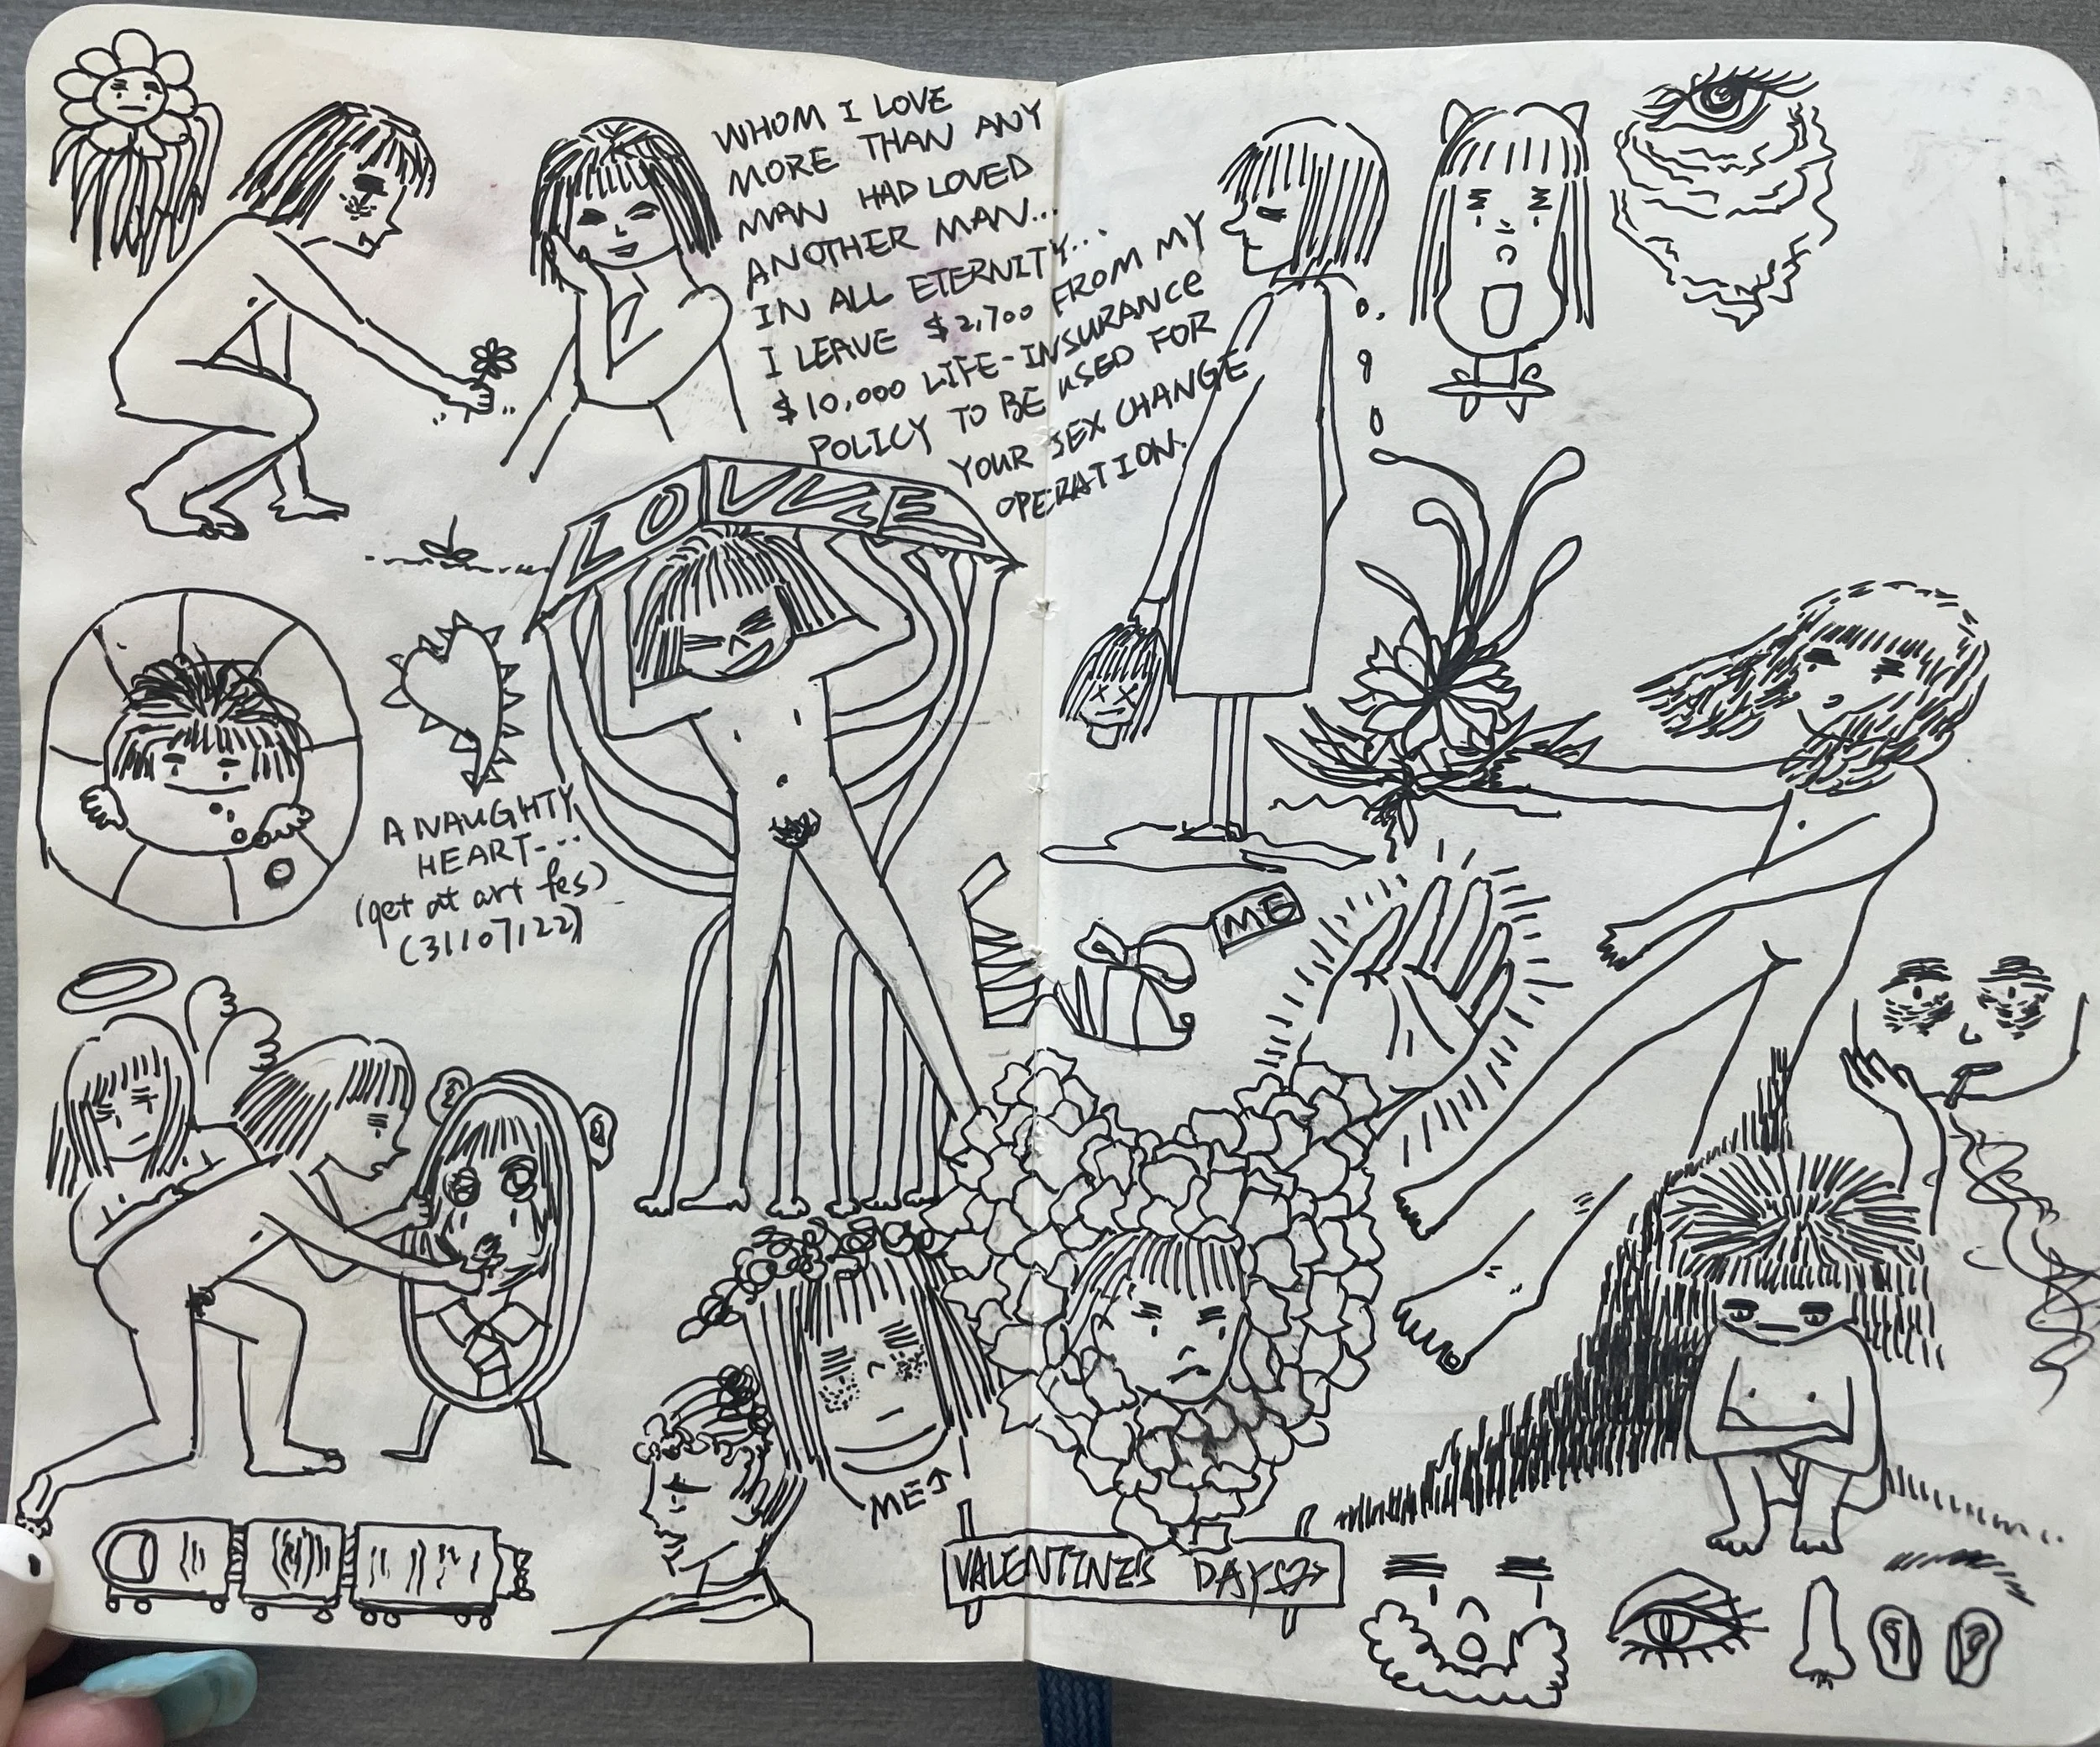 WHOM I LOVE
MORE THAN ANY
MAN HAD LOVED
ANOTHER MAN...
IN ALL ETERNITY...
I LEAVE $2,700 FROM MY
$10,000 LIFE-INSURANCE
POLICY TO BE USED FOR
YOUR SEX CHANGE
OPERATION.
LOVVE
A NAUGHTY
HEART...
(get at art fes)
(31107122)
ME
ME↑
VALENTINE'S DAYS